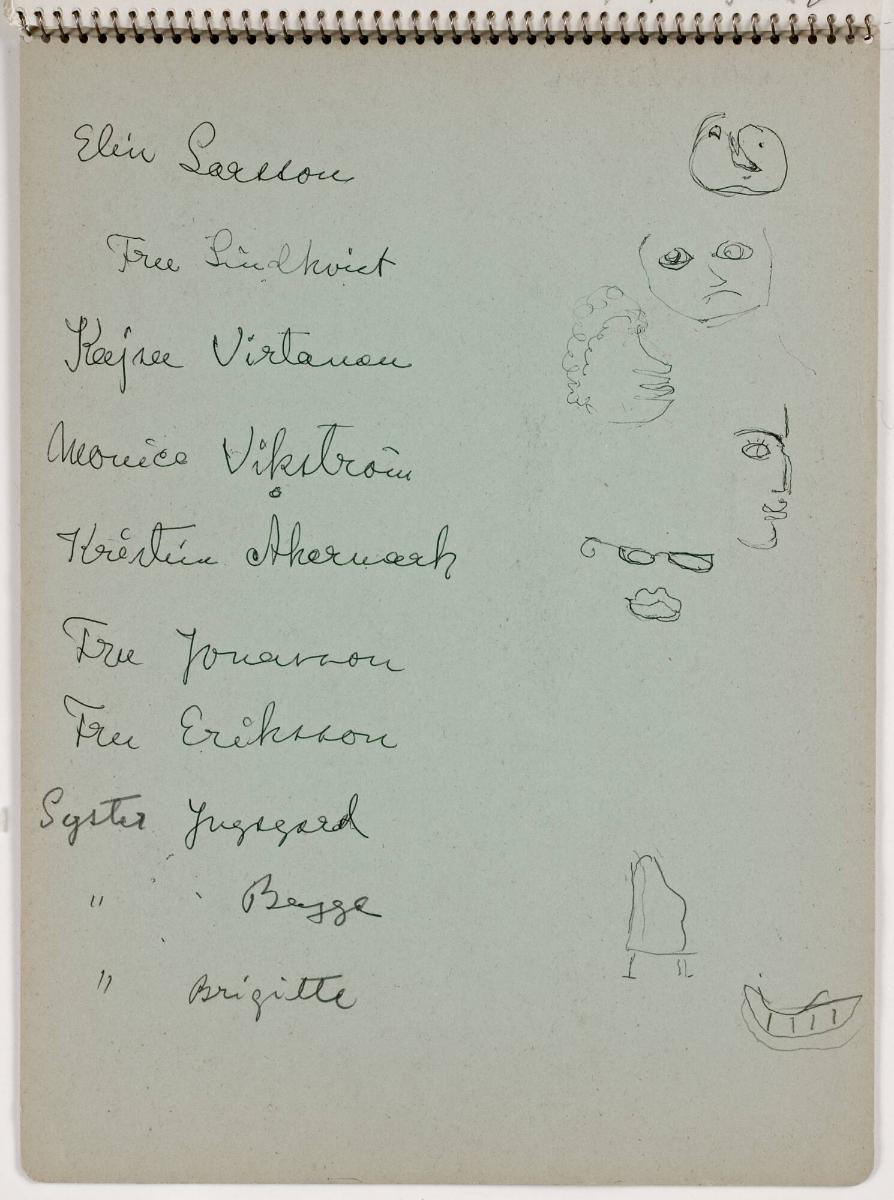 Elin Larsson
Fru Lindkvist
Kajsa Virtanen
Monica Vikström
Kerstin Åkermark
Fru Jonasson
Fru Eriksson
Syster Ingegerd
" Bagge
" Brigitte